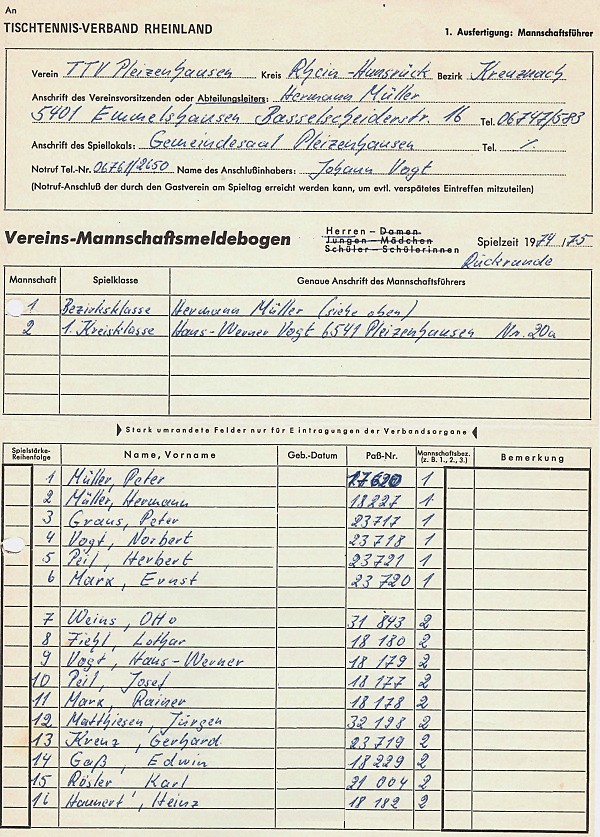 An
TISCHTENNIS-VERBAND RHEINLAND
1. Ausfertigung: Mannschaftsführer
Verein TTV Pleizenhausen Kreis Rhein-Hunsrück Bezirk Kreuznach
Anschrift des Vereinsvorsitzenden oder Abteilungsleiters: Hermann Müller
5401 Emmelshausen Basselscheiderstr. 16 Tel. 06747/583
Anschrift des Spiellokals: Gemeindesaal Pleizenhausen Tel. ./.
Notruf Tel.-Nr. 06761/2650 Name des Anschlußinhabers: Johann Vogt
(Notruf-Anschluß der durch den Gastverein am Spieltag erreicht werden kann, um evtl. verspätetes Eintreffen mitzuteilen)
Vereins-Mannschaftsmeldebogen
Herren – Damen
Jungen – Mädchen
Schüler – Schülerinnen
Spielzeit 1974/75
Rückrunde
Mannschaft Spielklasse Genaue Anschrift des Mannschaftsführers
1 Bezirksklasse Hermann Müller (siehe oben)
2 1. Kreisklasse Hans-Werner Vogt 6541 Pleizenhausen Nr. 20a
Stark umrandete Felder nur für Eintragungen der Verbandsorgane
Spielstärke-Reihenfolge Name, Vorname Geb.-Datum Paß-Nr. Mannschaftsbez. (z. B. 1., 2., 3.) Bemerkung
1 Müller, Peter 17620 1
2 Müller, Hermann 18227 1
3 Graus, Peter 23717 1
4 Vogt, Norbert 23718 1
5 Peil, Herbert 23721 1
6 Marx, Ernst 23720 1
7 Weins, Otto 31 843 2
8 Fiehl, Lothar 18 180 2
9 Vogt, Hans-Werner 18 179 2
10 Peil, Josef 18 177 2
11 Marx, Rainer 18 178 2
12 Matthiesen, Jürgen 32 198 2
13 Krenz, Gerhard 23719 2
14 Gaß, Edwin 18 229 2
15 Rösler Karl 21 004 2
16 Heinz 18 182 2